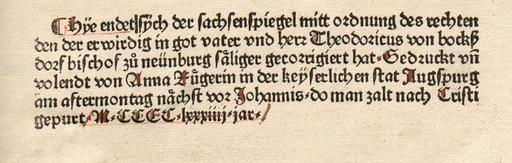 ¶ Hÿe endet sÿch der sachsenspiegel mitt ordnung des rechten
den der erwirdig in got vater vnd herr Theodoricus von bockß
dorf bischof zů neünburg såliger gecorrigiert hat · Gedruckt vn̄
volendt von Anna Rügerin in der keÿserlichen stat Augspurg
am aftermontag nåchst vor Johannis · do man zalt nach Cristi
gepurt / M · CCCC · lxxxiiij · jar · /